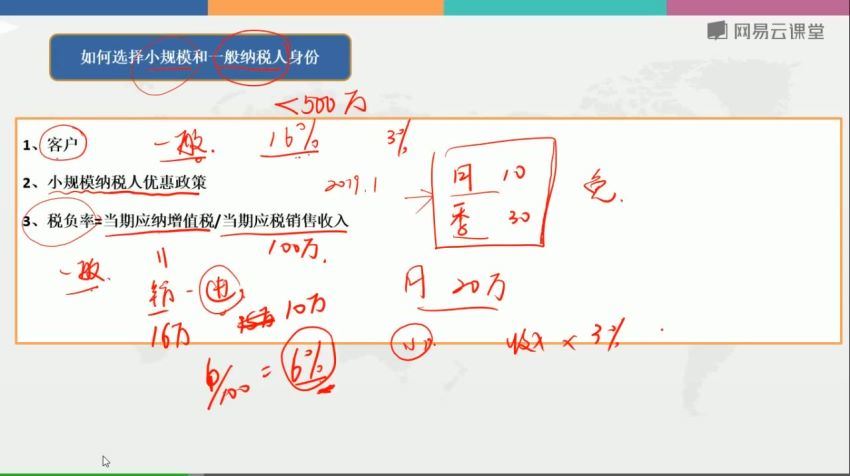 网易云课堂
如何选择小规模和一般纳税人身份
<500万
1、客户 一般. 16% 3%
2、小规模纳税人优惠政策 2019.1 月 10 免.
3、税负率=当期应纳增值税/当期应税销售收入 季 30
一般. 100万.
销 - 进 10万 月 20万
16万
6/100 = 6% 小 收入 × 3%